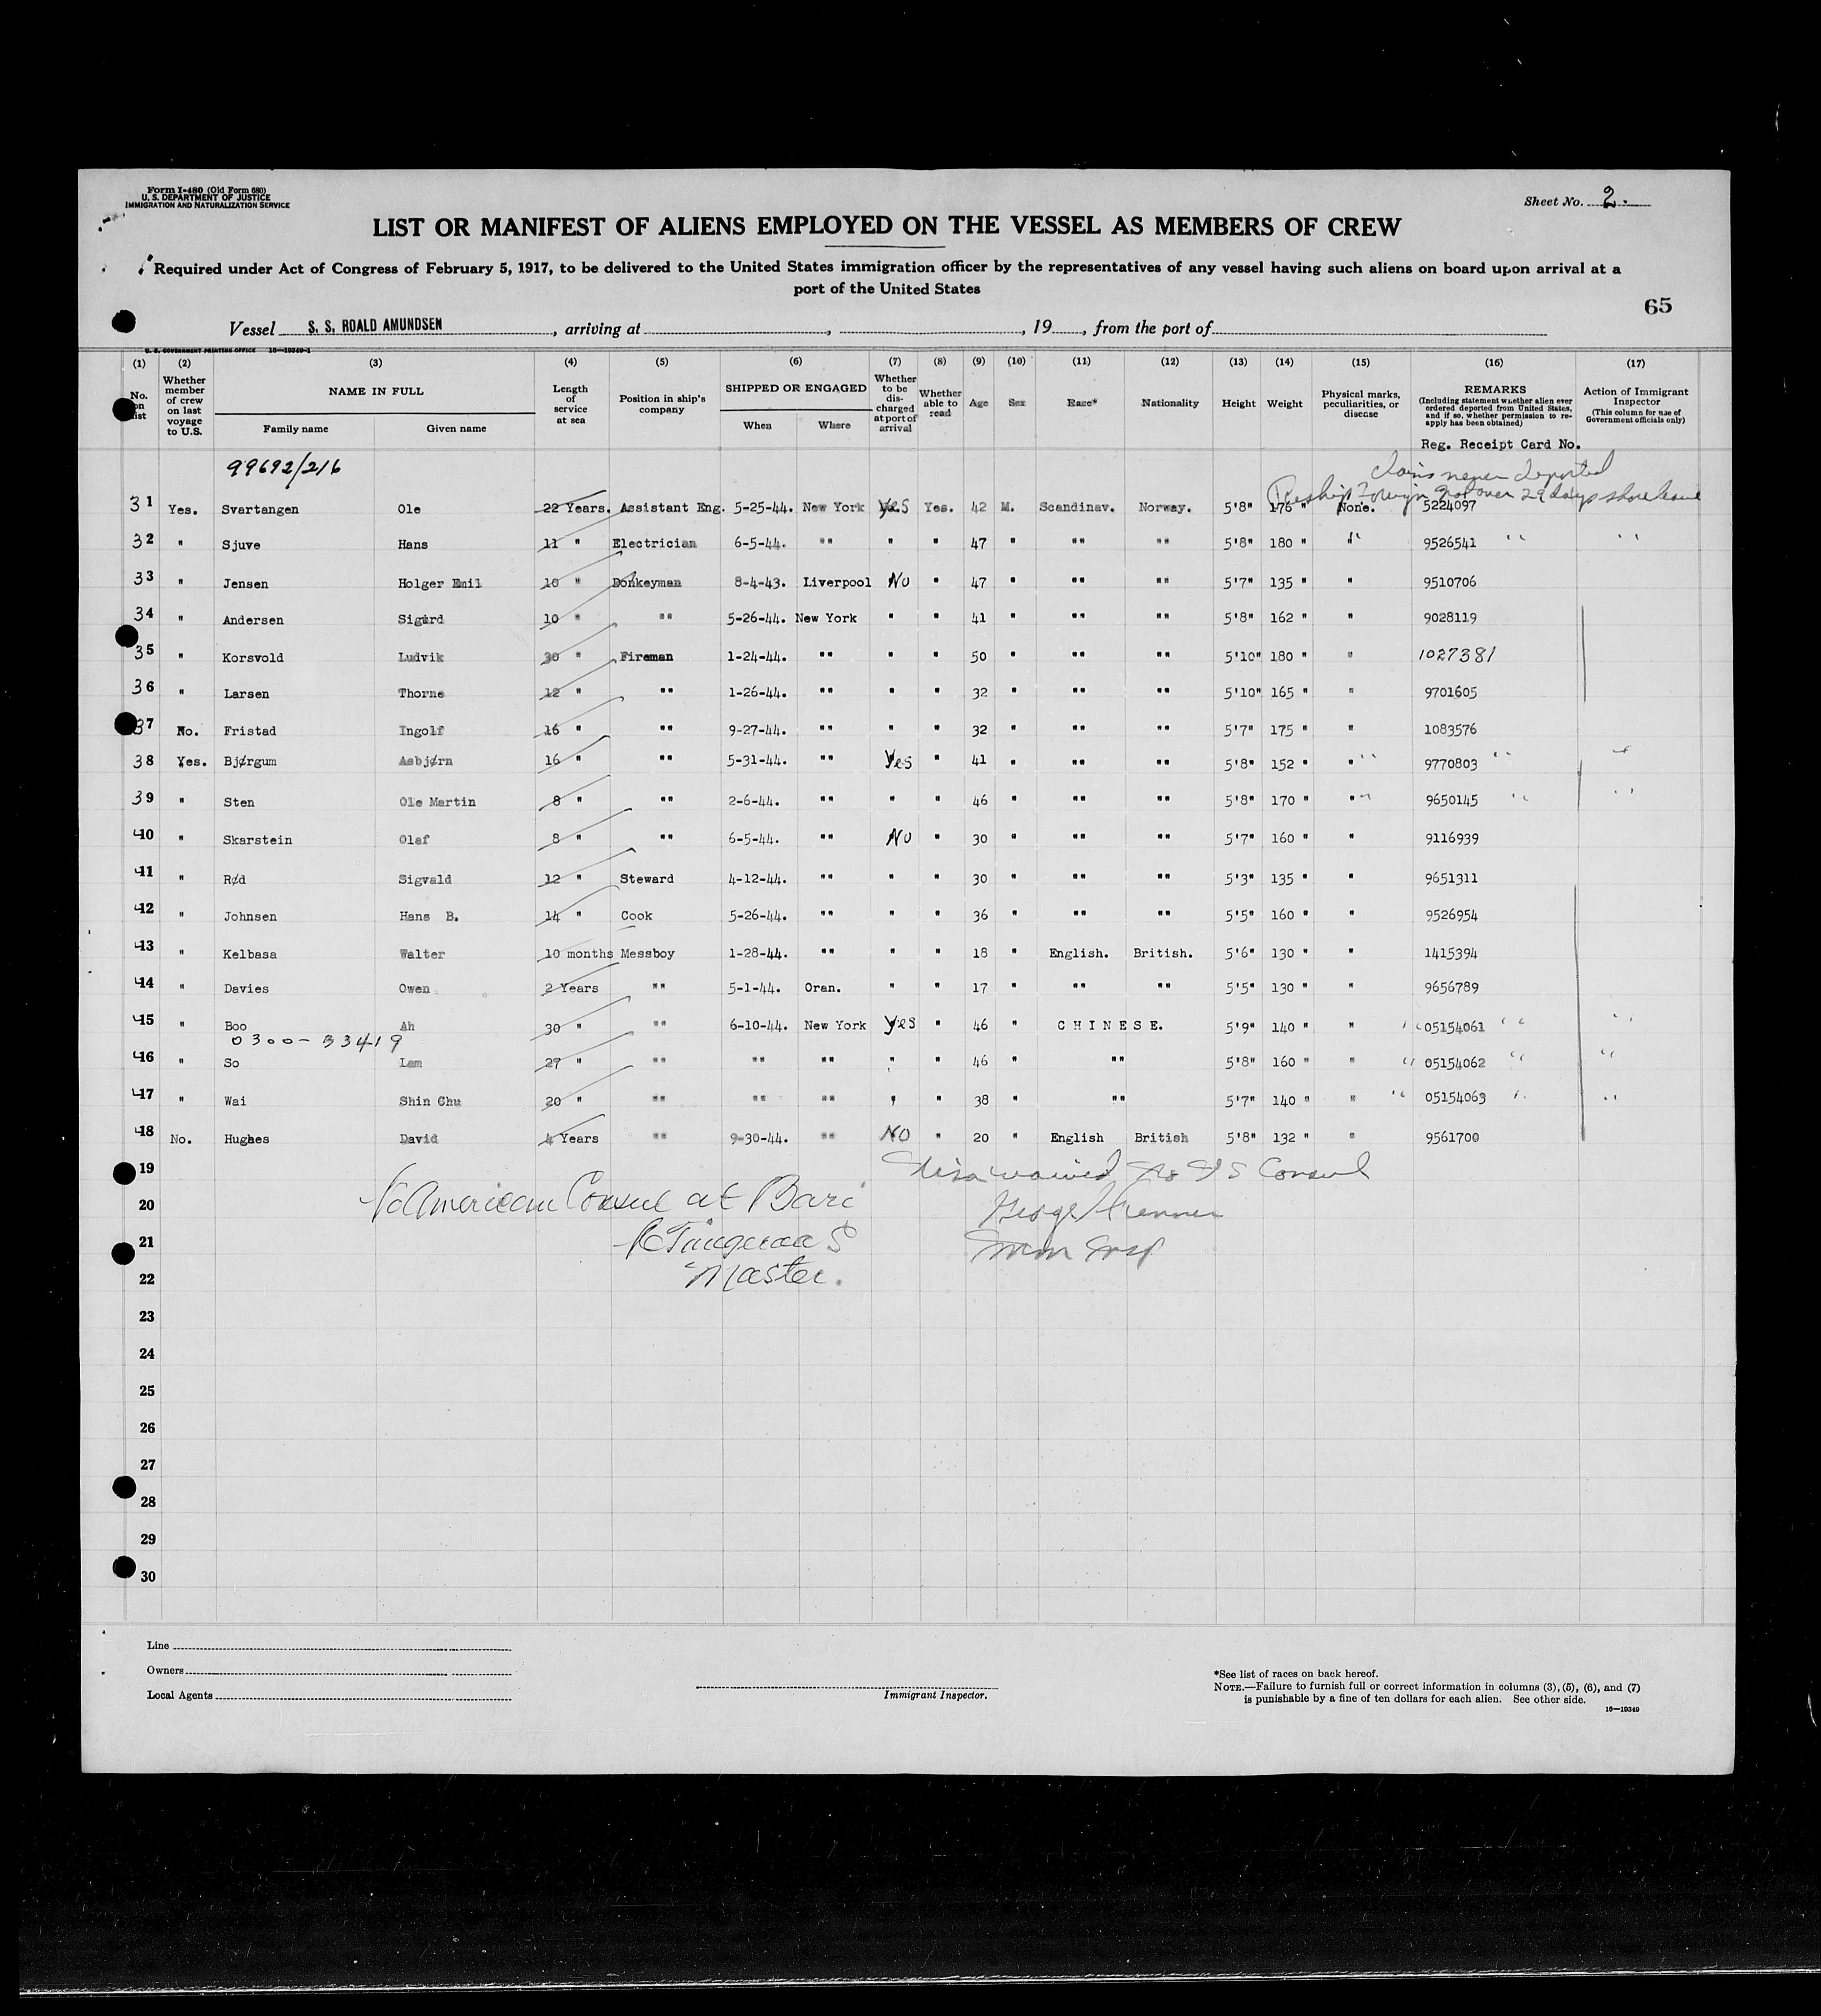 Form I-480 (Old Form 680)
U. S. DEPARTMENT OF JUSTICE
IMMIGRATION AND NATURALIZATION SERVICE
Sheet No. 2.
LIST OR MANIFEST OF ALIENS EMPLOYED ON THE VESSEL AS MEMBERS OF CREW
Required under Act of Congress of February 5, 1917, to be delivered to the United States immigration officer by the representatives of any vessel having such aliens on board upon arrival at a
port of the United States
65
Vessel S. S. ROALD AMUNDSEN, arriving at , , 19 , from the port of
U. S. GOVERNMENT PRINTING OFFICE 16—19349-1
(1) (2) (3) (4) (5) (6) (7) (8) (9) (10) (11) (12) (13) (14) (15) (16) (17)
No. on list
Whether member of crew on last voyage to U.S.
NAME IN FULL
Family name Given name
Length of service at sea
Position in ship's company
SHIPPED OR ENGAGED
When Where
Whether to be discharged at port of arrival
Whether able to read
Age
Sex
Race*
Nationality
Height
Weight
Physical marks, peculiarities, or disease
REMARKS
(Including statement whether alien ever ordered deported from United States, and if so, whether permission to reapply has been obtained)
Reg. Receipt Card No.
Action of Immigrant Inspector
(This column for use of Government officials only)
99692/216
claims never deported
Reship Foreign not over 29 days shore leave
31 Yes. Svartangen Ole 22 Years. Assistant Eng. 5-25-44. New York Yes Yes. 42 M. Scandinav. Norway. 5'8" 176 " None. 5224097
32 " Sjuve Hans 11 " Electrician 6-5-44. "" " " 47 " "" "" 5'8" 180 " " 9526541 " "
33 " Jensen Holger Emil 10 " Donkeyman 8-4-43. Liverpool No " 47 " "" "" 5'7" 135 " " 9510706
34 " Andersen Sigurd 10 " "" 5-26-44. New York " " 41 " "" "" 5'8" 162 " " 9028119
35 " Korsvold Ludvik 30 " Fireman 1-24-44. "" " " 50 " "" "" 5'10" 180 " " 1027381
36 " Larsen Thorne 12 " "" 1-26-44. "" " " 32 " "" "" 5'10" 165 " " 9701605
37 No. Fristad Ingolf 16 " "" 9-27-44. "" " " 32 " "" "" 5'7" 175 " " 1083576
38 Yes. Bjørgum Asbjørn 16 " "" 5-31-44. "" Yes " 41 " "" "" 5'8" 152 " " 9770803 "
39 " Sten Ole Martin 8 " "" 2-6-44. "" " " 46 " "" "" 5'8" 170 " " 9650145 " "
40 " Skarstein Olaf 8 " "" 6-5-44. "" No " 30 " "" "" 5'7" 160 " " 9116939
41 " Rød Sigvald 12 " Steward 4-12-44. "" " " 30 " "" "" 5'3" 135 " " 9651311
42 " Johnsen Hans B. 14 " Cook 5-26-44. "" " " 36 " "" "" 5'5" 160 " " 9526954
43 " Kelbasa Walter 10 months Messboy 1-28-44. "" " " 18 " English. British. 5'6" 130 " " 1415394
44 " Davies Owen 2 Years "" 5-1-44. Oran. " " 17 " "" "" 5'5" 130 " " 9656789
45 " Boo Ah 30 " "" 6-10-44. New York Yes " 46 " CHINESE. 5'9" 140 " " 05154061 " "
0300-33419
46 " So Lam 27 " "" "" "" " " 46 " "" 5'8" 160 " " 05154062 " "
47 " Wai Shin Chu 20 " "" "" "" " " 38 " "" 5'7" 140 " " 05154063 " "
48 No. Hughes David 4 Years "" 9-30-44. "" No " 20 " English British 5'8" 132 " " 9561700
19
Visa waived No U S Consul
20
No American Consul at Bari
George
21
Imm Insp
22
Master.
23
24
25
26
27
28
29
30
Line
Owners
Local Agents
Immigrant Inspector.
*See list of races on back hereof.
NOTE.—Failure to furnish full or correct information in columns (3), (5), (6), and (7)
is punishable by a fine of ten dollars for each alien. See other side.
16—19349